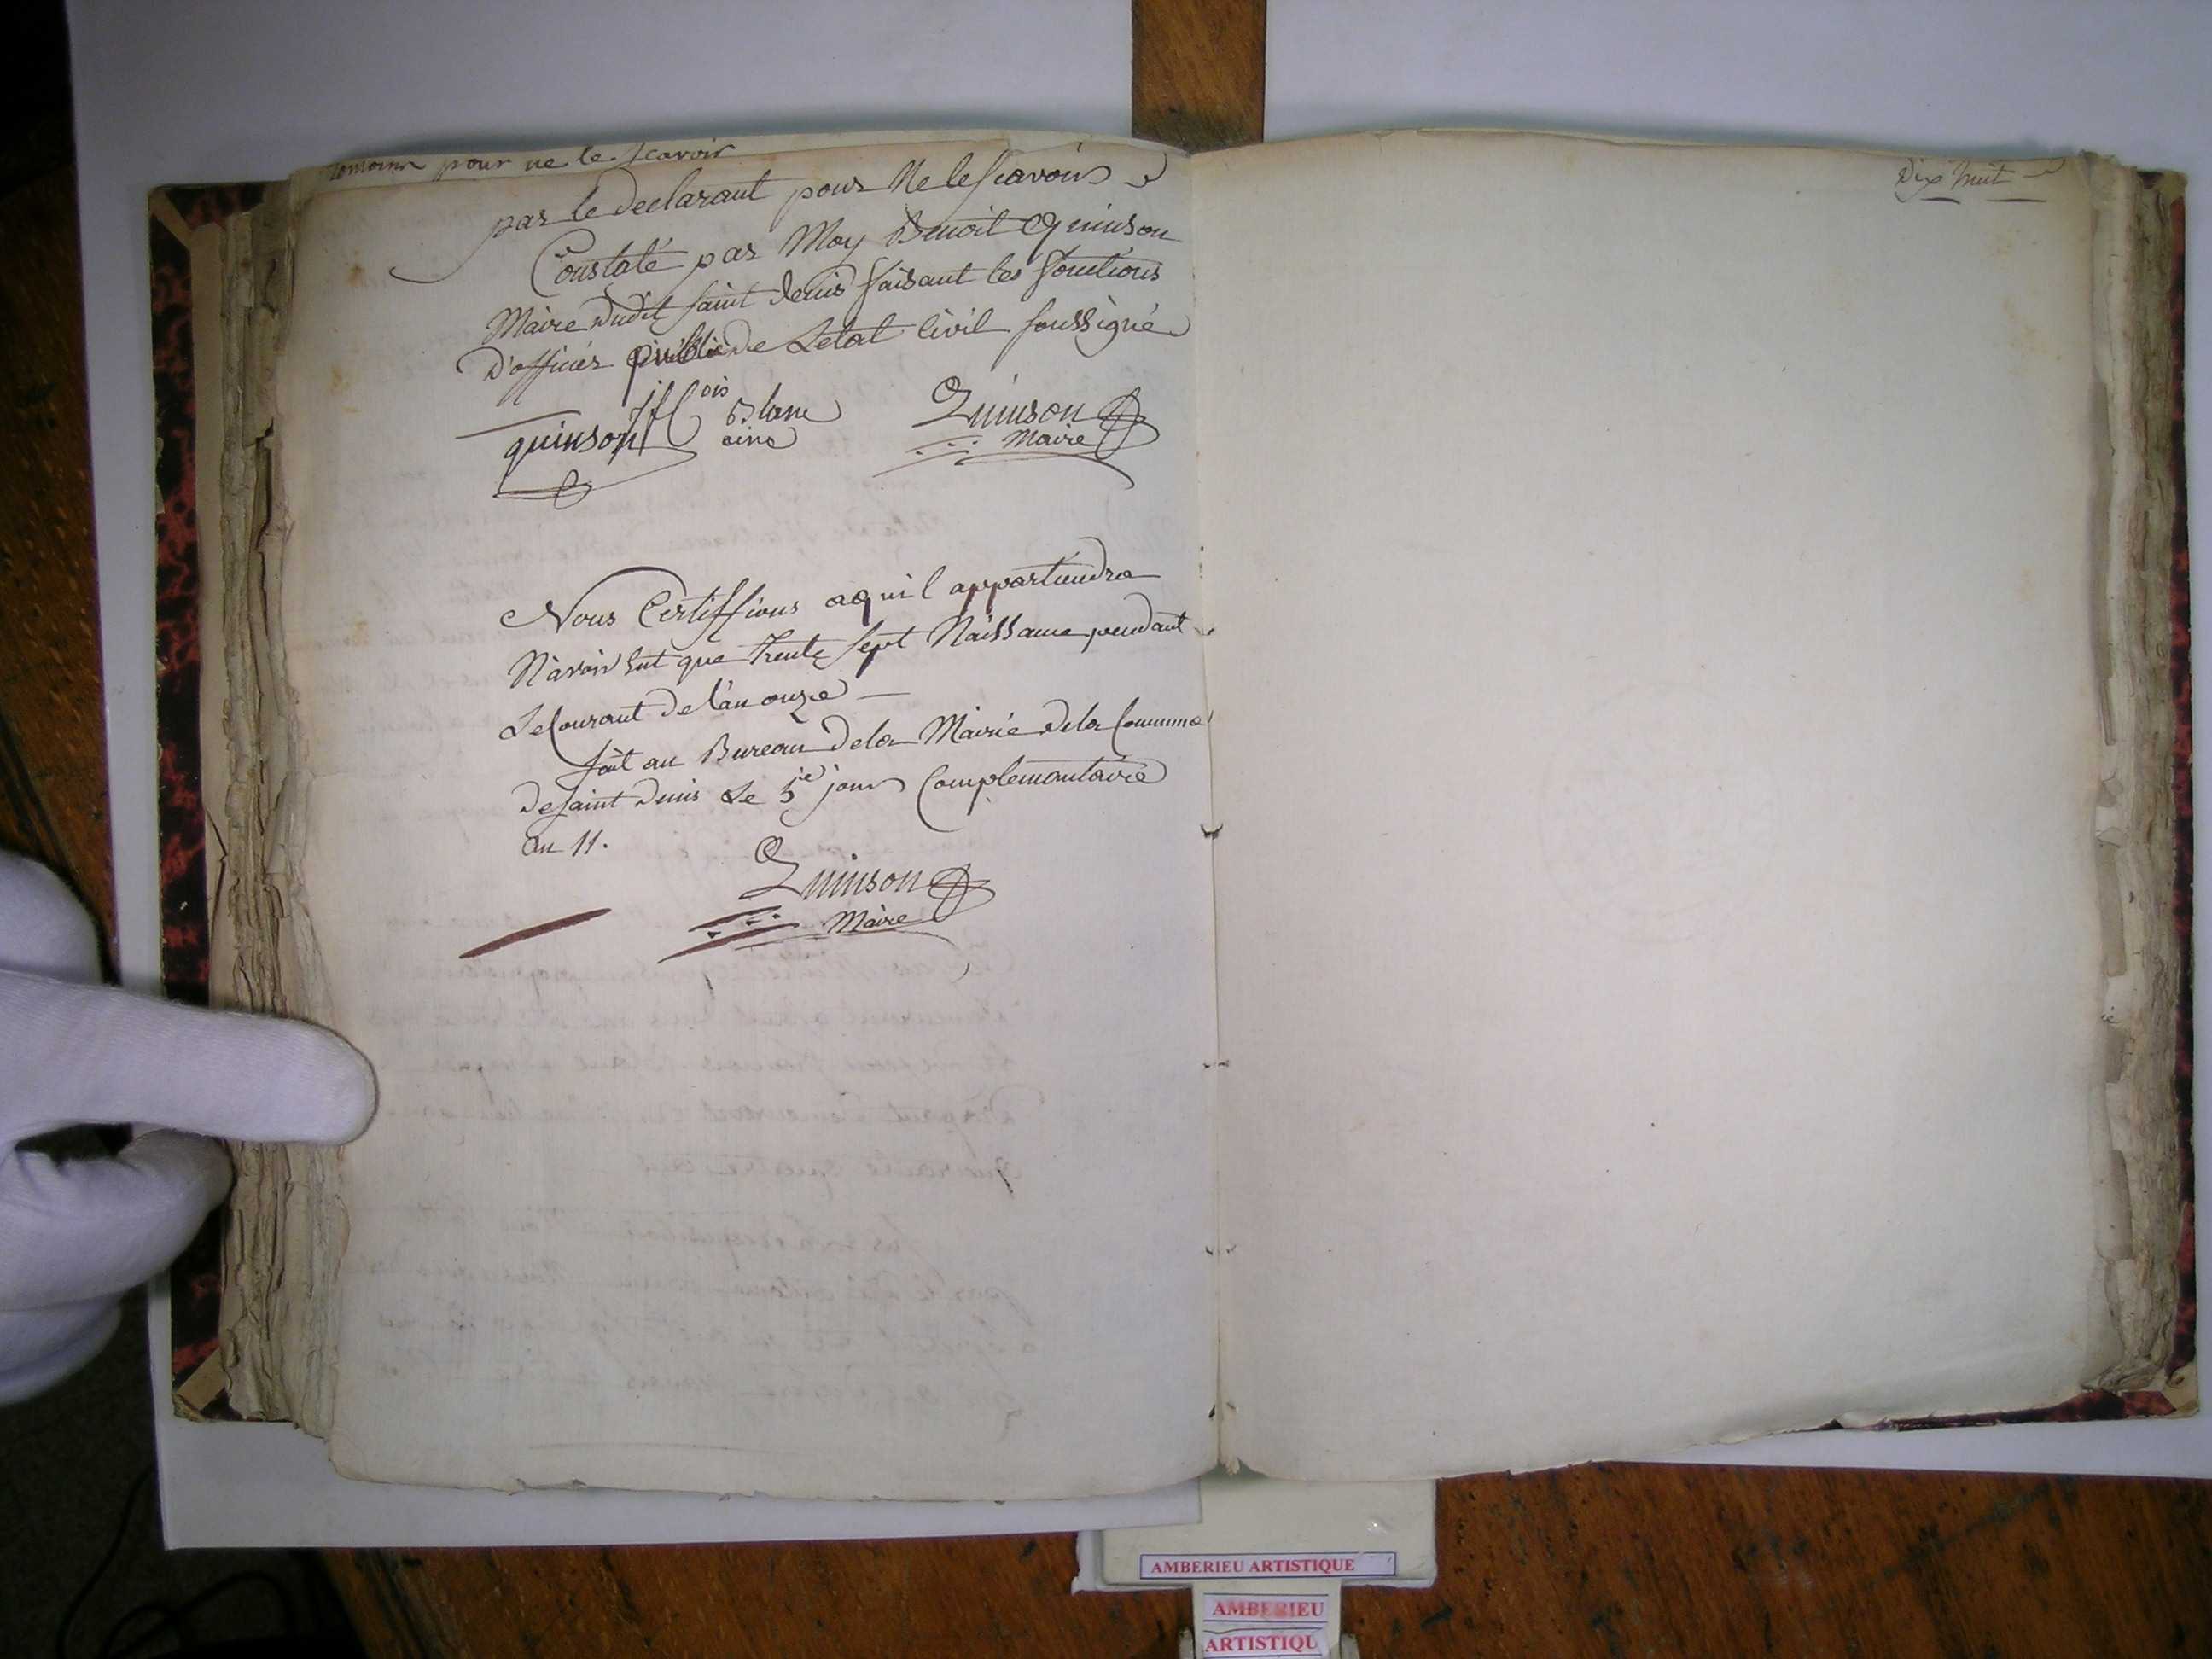 temoins pour ne le scavoir
par le declarant pour Ne le scavoir
Constaté par Moy Benoit Quinson
Maire dudit saint denis faisant les fonctions
D'officier public de Letat Civil soussigné
quinson ois Blanc Quinson
Maire
Nous Certiffions aquil appartiendra
N'avoir Eut que Trente sept Naissance pendant
Le Courant de l'an onze
fait au Bureau de la Mairie de la Commune
de saint denis Le 5ie jour Complementaire
an 11.
Quinson
Maire
Dix huit
AMBERIEU ARTISTIQUE
AMBERIEU
ARTISTIQU